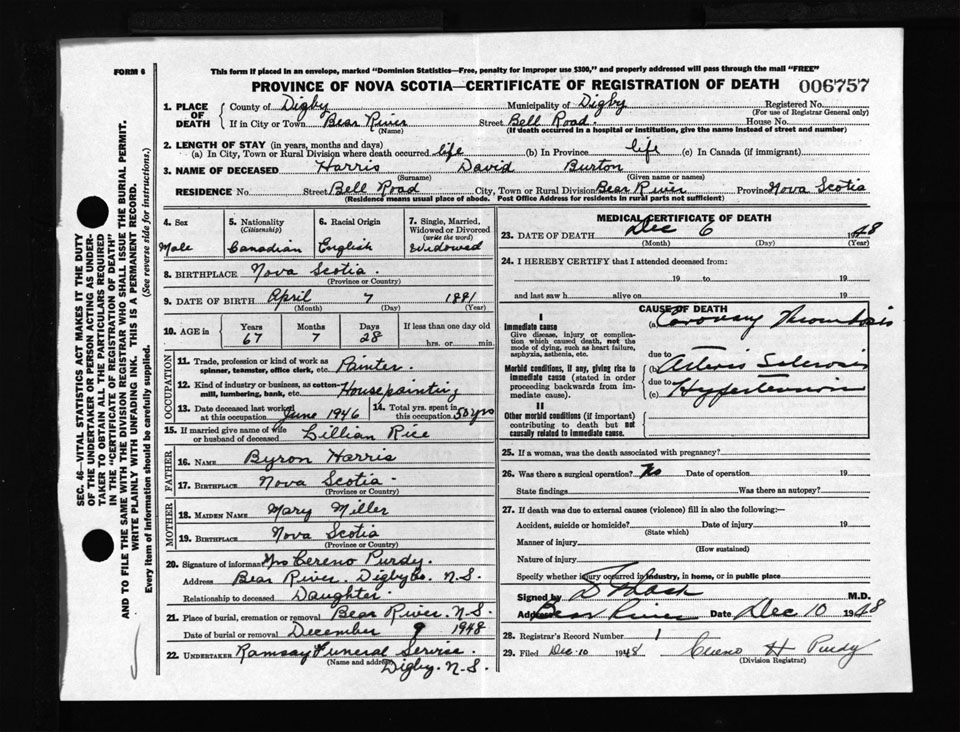 FORM 6
This form if placed in an envelope, marked "Dominion Statistics—Free, penalty for improper use $300," and properly addressed will pass through the mail "FREE"
PROVINCE OF NOVA SCOTIA—CERTIFICATE OF REGISTRATION OF DEATH 006757
1. PLACE OF DEATH
County of Digby Municipality of Digby Registered No.
(For use of Registrar General only)
If in City or Town Bear River Street Bell Road House No.
(Name) (If death occurred in a hospital or institution, give the name instead of street and number)
2. LENGTH OF STAY (in years, months and days)
(a) In City, Town or Rural Division where death occurred life (b) In Province life (c) In Canada (if immigrant)
3. NAME OF DECEASED Harris David Burton
(Surname) (Given name or names)
RESIDENCE No. Street Bell Road City, Town or Rural Division Bear River Province Nova Scotia
(Residence means usual place of abode. Post Office Address for residents in rural parts not sufficient)
4. Sex
Male
5. Nationality
(Citizenship)
Canadian
6. Racial Origin
English
7. Single, Married,
Widowed or Divorced
(write the word)
Widowed
8. BIRTHPLACE Nova Scotia.
(Province or Country)
9. DATE OF BIRTH April 7 1881
(Month) (Day) (Year)
10. AGE in
Years Months Days If less than one day old
67 7 28 hrs. or min.
OCCUPATION
11. Trade, profession or kind of work as
spinner, teamster, office clerk, etc. Painter.
12. Kind of industry or business, as cotton-
mill, lumbering, bank, etc. Housepainting
13. Date deceased last worked
at this occupation June 1946
14. Total yrs. spent in
this occupation 50 yrs
15. If married give name of wife
or husband of deceased Lillian Rice
FATHER
16. NAME Byron Harris
17. BIRTHPLACE Nova Scotia.
(Province or Country)
MOTHER
18. MAIDEN NAME Mary Miller
19. BIRTHPLACE Nova Scotia
(Province or Country)
20. Signature of informant Mrs Cereno Purdy.
Address Bear River. Digby Co. N.S.
Relationship to deceased Daughter.
21. Place of burial, cremation or removal Bear River. N.S.
Date of burial or removal December 9 1948
22. UNDERTAKER Ramsay Funeral Service.
(Name and address) Digby. N.S.
MEDICAL CERTIFICATE OF DEATH
23. DATE OF DEATH Dec 6 1948
(Month) (Day) (Year)
24. I HEREBY CERTIFY that I attended deceased from:
19 to 19
and last saw h alive on 19
CAUSE OF DEATH
I
Immediate cause
Give disease, injury or complica-
tion which caused death, not the
mode of dying, such as heart failure,
asphyxia, asthenia, etc.
(a) Coronary Thrombosis
Morbid conditions, if any, giving rise to
immediate cause (stated in order
proceeding backwards from im-
mediate cause).
due to
(b) Arterio Sclerosis
due to
(c) Hypertension
II
Other morbid conditions (if important)
contributing to death but not
causally related to immediate cause.
25. If a woman, was the death associated with pregnancy?
26. Was there a surgical operation? No Date of operation 19
State findings Was there an autopsy?
27. If death was due to external causes (violence) fill in also the following:—
Accident, suicide or homicide? Date of injury 19
(State which)
Manner of injury
(How sustained)
Nature of injury
Specify whether injury occurred in industry, in home, or in public place
Signed by M.D.
Address Bear River Date Dec 10 1948
28. Registrar's Record Number 1
29. Filed Dec. 10 1948 Cereno H Purdy
(Division Registrar)
SEC. 46—VITAL STATISTICS ACT MAKES IT THE DUTY
OF THE UNDERTAKER OR PERSON ACTING AS UNDER-
TAKER TO OBTAIN ALL THE PARTICULARS REQUIRED
IN THE "CERTIFICATE OF REGISTRATION OF DEATH"
AND TO FILE THE SAME WITH THE DIVISION REGISTRAR WHO SHALL ISSUE THE BURIAL PERMIT.
WRITE PLAINLY WITH UNFADING INK. THIS IS A PERMANENT RECORD.
Every item of information should be carefully supplied. (See reverse side for instructions.)